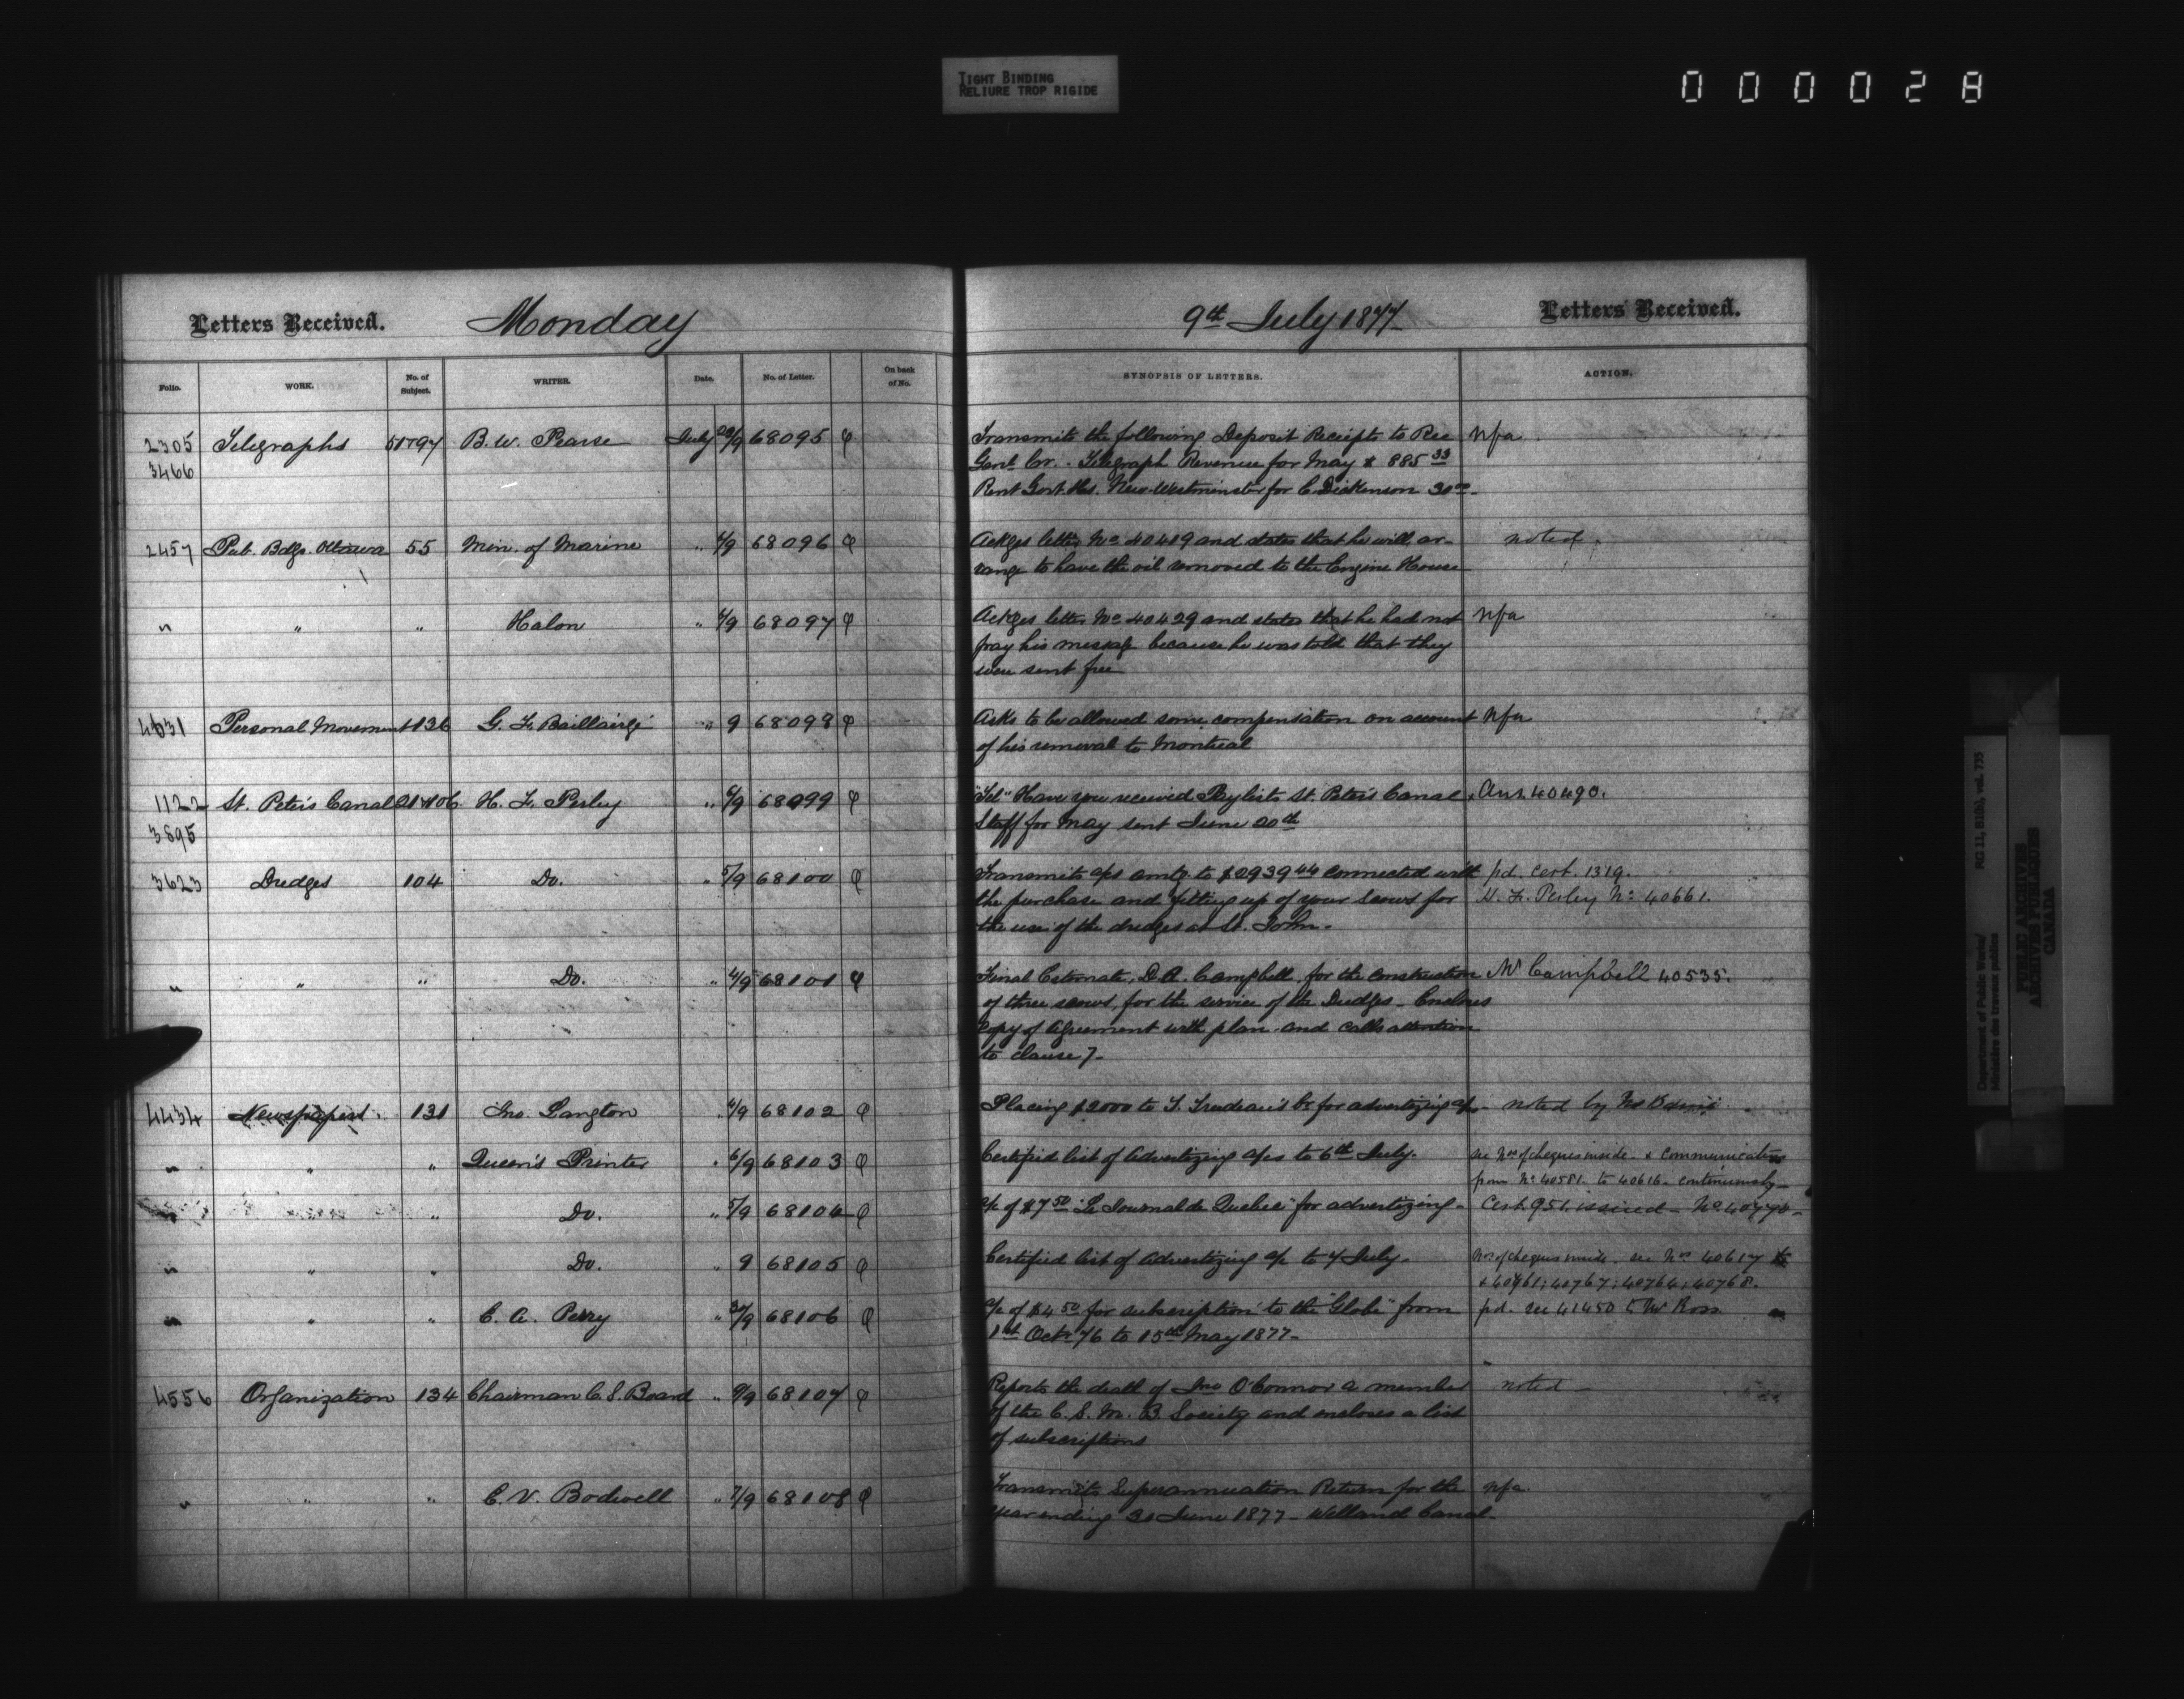 TIGHT BINDING
RELIURE TROP RIGIDE
000028
Letters Received. Monday
9th July 1877 Letters Received.
Folio. WORK. No. of Subject. WRITER. Date. No. of Letter. On back of No. SYNOPSIS OF LETTERS. ACTION.
2305 Telegraphs 97 B. W. Pearse July 68095 Transmits the following Deposit Receipts to Rec nfa
3466 Genl Cr. Telegraph Revenue for May $ 885 33
Rent Govt. Hs. New Westminster for C. Dickenson 30 00
2457 Pub. Bdgs. Ottawa 55 Min. of Marine " 68096 Ackges letter No 40419 and states that he will ar- noted
range to have the oil removed to the Engine House
" " " Halon " 68097 Ackges letter No 40429 and states that he had not nfa
pay his message because he was told that they
were sent free
4631 Personal Movement 136 G. F. Baillairgé " 9 68098 Asks to be allowed some compensation on account nfa
of his removal to Montreal
1122 St. Peter's Canal 106 H. F. Perley " 68099 "Tel" Have you received Paylists St. Peter's Canal Ans. 40490.
3895 Staff for May sent June 20th
3623 Dredges 104 Do. " 5/9 68100 Transmits a/cs amtg to $2939 44 connected with pd. cert. 1319.
the purchase and fitting up of your scows for H. F. Perley No 40661.
the use of the dredges at St. John.
" " " Do. " 4/9 68101 Final Estimate, D. A. Campbell, for the construction Mr Campbell 40535.
of three scows, for the service of the Dredges - Encloses
copy of agreement with plan and calls attention
to clause 7-
4434 Newspapers. 131 Jno. Langton " 68102 Placing $2000 to T. Trudeau's Cr. for advertizing a/c noted by Mr
" " " Queen's Printer " 6/9 68103 Certified list of advertizing a/cs to 6th July. see Nos of cheques inside - & communications
from No 40581. to 40616. continuously-
" Do. " 5/9 68104 a/c of $7 50 "Le Journal de Quebec" for advertizing - Cert. 951. issued - No
" " " Do. " 9 68105 Certified list of advertizing a/c to 7 July. Nos of cheques inside. see Nos 40617
40767; 40764; 40768.
" " " C. A. Perry " 68106 a/c of $4 50 for subscription to the "Globe" from pd. see 41450 to Mr Ross
1st Oct. 76 to 15th May 1877-
4556 Organization 134 Chairman C. S. Board " 68107 Reports the death of Jno O'Connor a member noted -
of the C. S. M. B. Society and encloses a list
of subscriptions
" " " C. V. Bodwell " 7/9 68108 Transmits Superannuation Return for the nfa
Year ending 30 June 1877 - Welland Canal.
Department of Public Works/ RG 11, B1(b), vol. 735
Ministère des travaux publics
PUBLIC ARCHIVES
ARCHIVES PUBLIQUES
CANADA